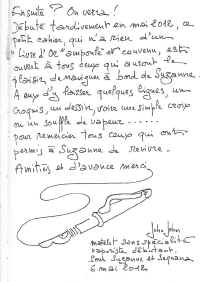 Ensuite ? On verra !
Débuté tardivement en mai 2012, ce
petit cahier, qui n'a rien d'un
"Livre d'Or" ampoulé et convenu, est
ouvert à tous ceux qui auront le
plaisir de naviguer à bord de Suzanne.
A eux d'y laisser quelques lignes, un
croquis, un dessin, voire une simple croix
ou un souffle de vapeur......
pour remercier tous ceux qui ont
permis à Suzanne de revivre.
Amitiés et d'avance merci
John John
matelot sans spécialité
vaporiste débutant.
Suzanne et Sequana
6 mai 2012